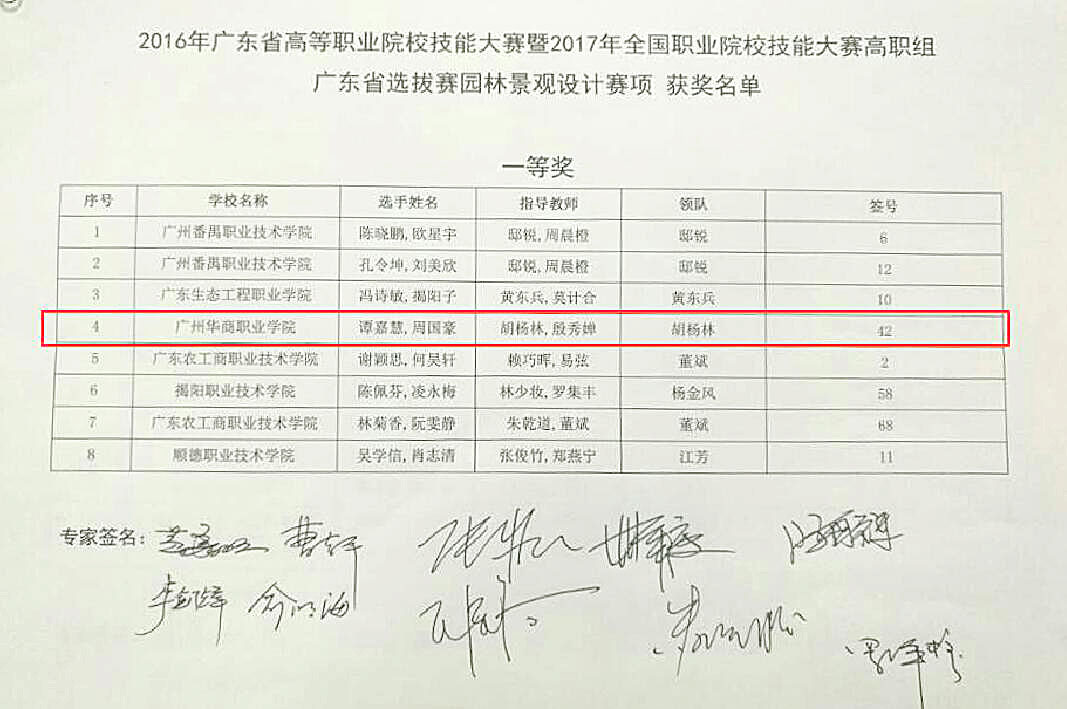 2016年广东省高等职业院校技能大赛暨2017年全国职业院校技能大赛高职组
广东省选拔赛园林景观设计赛项 获奖名单
一等奖
序号 学校名称 选手姓名 指导教师 领队 签号
1 广州番禺职业技术学院 陈晓鹏,欧星宇 邸锐,周晨橙 邸锐 6
2 广州番禺职业技术学院 孔令坤,刘美欣 邸锐,周晨橙 邸锐 12
3 广东生态工程职业学院 冯诗敏,揭阳子 黄东兵,莫计合 黄东兵 10
4 广州华商职业学院 谭嘉慧,周国豪 胡杨林,殷秀婵 胡杨林 42
5 广东农工商职业技术学院 谢颖思,何昊轩 赖巧晖,易弦 董斌 2
6 揭阳职业技术学院 陈佩芬,凌永梅 林少妆,罗集丰 杨金凤 58
7 广东农工商职业技术学院 林菊香,阮雯静 朱乾道,董斌 董斌 68
8 顺德职业技术学院 吴学信,肖志清 张俊竹,郑燕宁 江芳 11
专家签名: